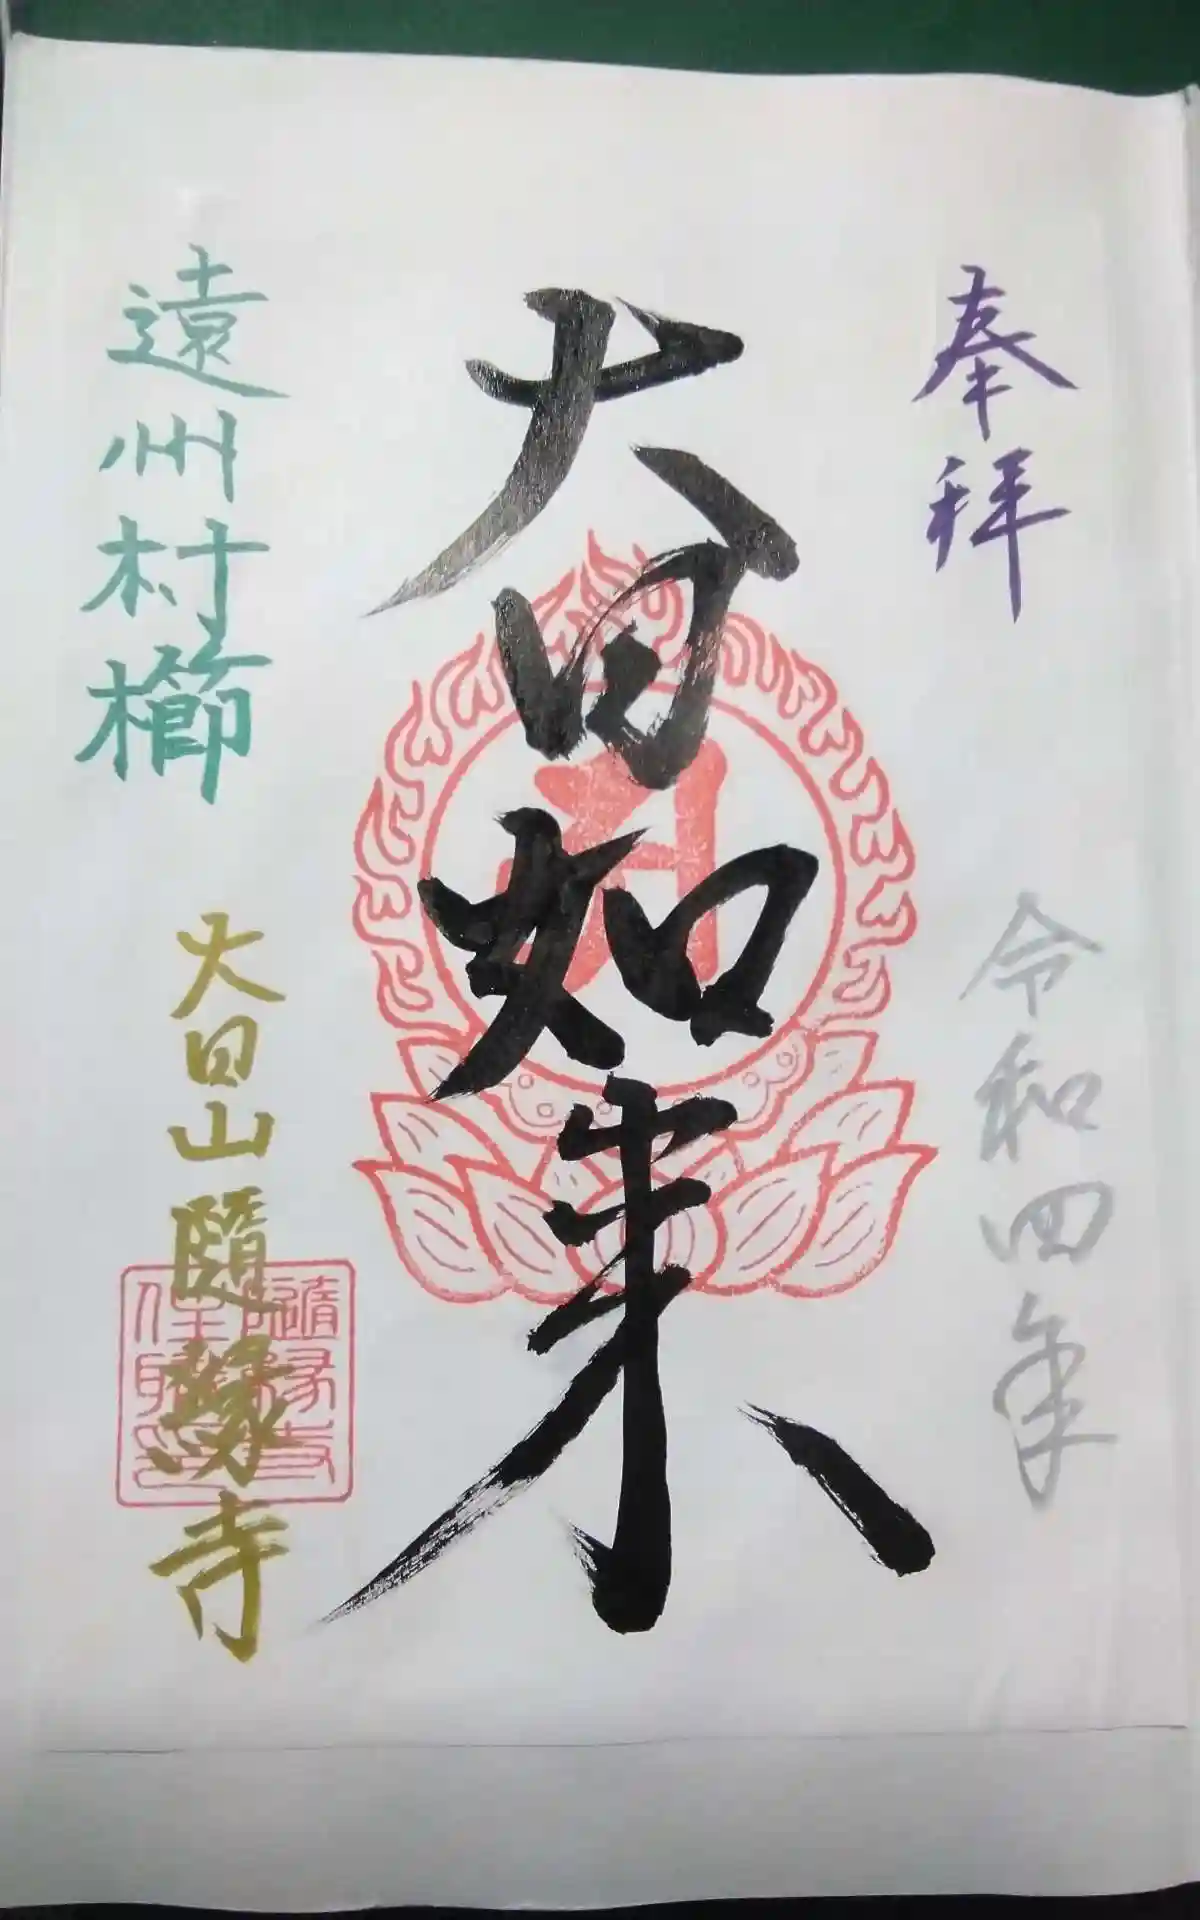 奉拝
令和四年
大日如来
遠州村櫛
大日山隨縁寺
隨縁寺
住職之印